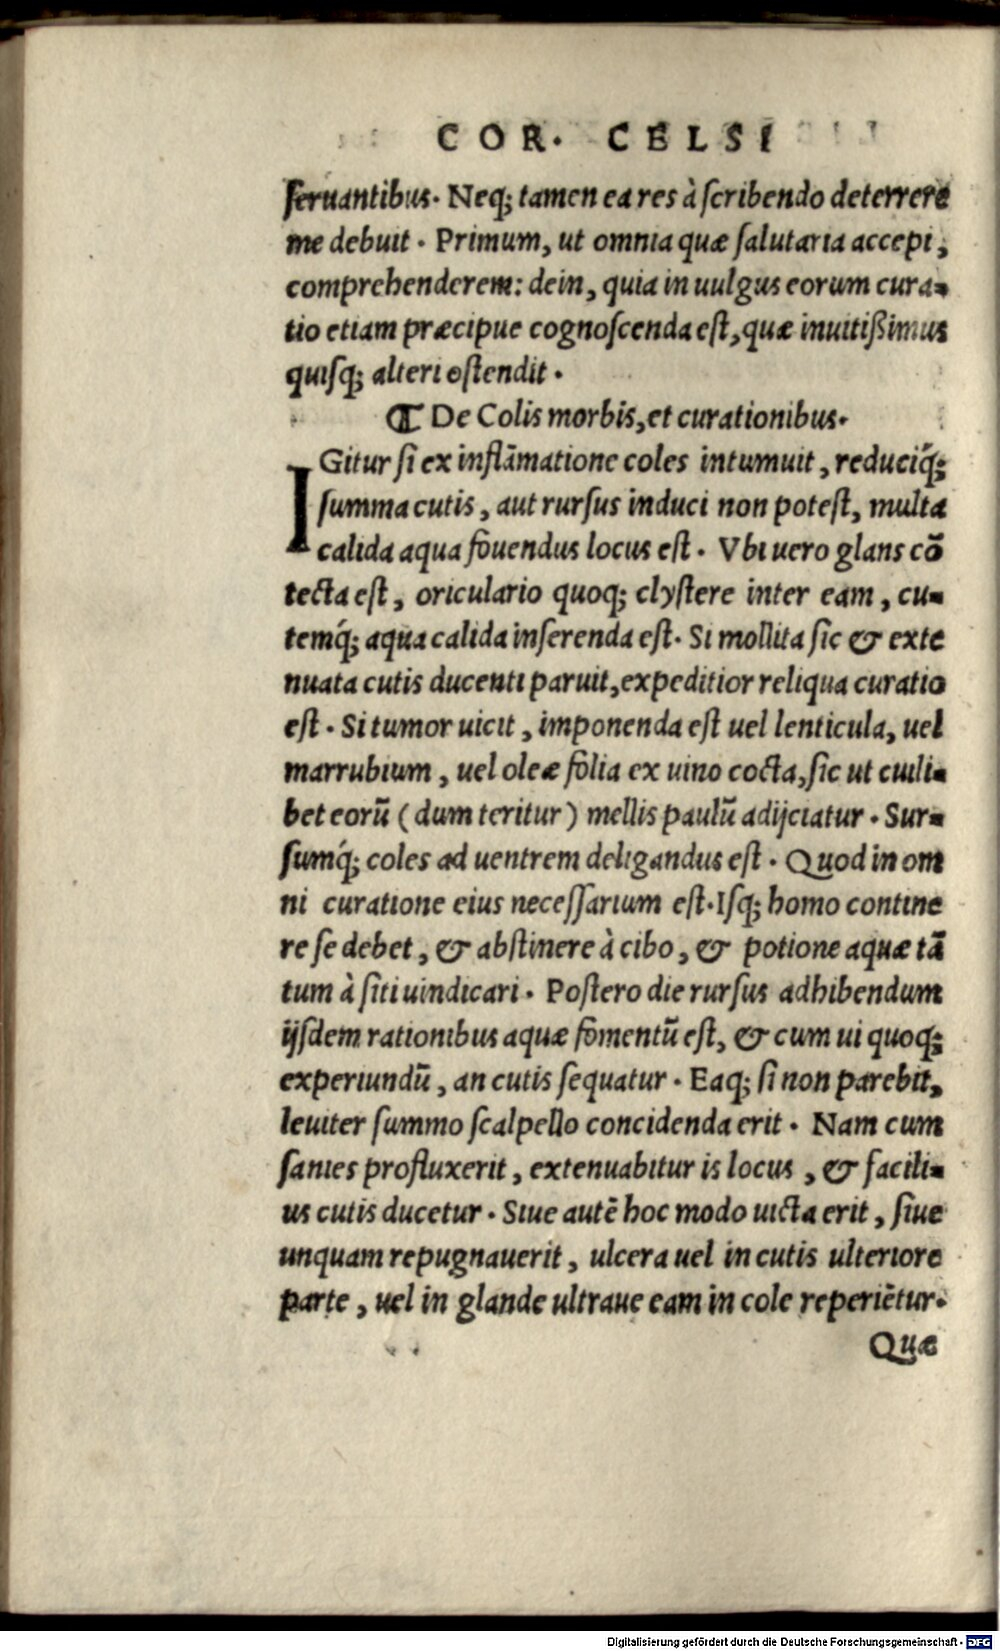 COR. CELSI
ſeruantibus. Neq; tamen ea res à ſcribendo deterrere
me debuit. Primum, ut omnia quæ ſalutaria accepi,
comprehenderem: dein, quia in uulgus eorum cura-
tio etiam præcipue cognoſcenda eſt, quæ inuitißimus
quiſq; alteri oſtendit.
¶ De Colis morbis, et curationibus.
IGitur ſi ex inflāmatione coles intumuit, reduciq́;
ſumma cutis, aut rurſus induci non poteſt, multa
calida aqua fouendus locus eſt. Vbi uero glans cō
tecta eſt, oriculario quoq; clyſtere inter eam, cu-
temq́; aqua calida inſerenda eſt. Si mollita ſic & exte
nuata cutis ducenti paruit, expeditior reliqua curatio
eſt. Si tumor uicit, imponenda eſt uel lenticula, uel
marrubium, uel oleæ folia ex uino cocta, ſic ut cuili-
bet eorū (dum teritur) mellis paulū adijciatur. Sur-
ſumq́; coles ad uentrem deligandus eſt. Quod in om
ni curatione eius neceſſarium eſt. Iſq; homo contine
re ſe debet, & abſtinere à cibo, & potione aquæ tā
tum à ſiti uindicari. Poſtero die rurſus adhibendum
ijſdem rationibus aquæ fomentū eſt, & cum ui quoq;
experiundū, an cutis ſequatur. Eaq; ſi non parebit,
leuiter ſummo ſcalpello concidenda erit. Nam cum
ſanies profluxerit, extenuabitur is locus, & facili-
us cutis ducetur. Siue autē hoc modo uicta erit, ſiue
unquam repugnauerit, ulcera uel in cutis ulteriore
parte, uel in glande ultraue eam in cole reperiētur.
Quæ
Digitalisierung gefördert durch die Deutsche Forschungsgemeinschaft - DFG